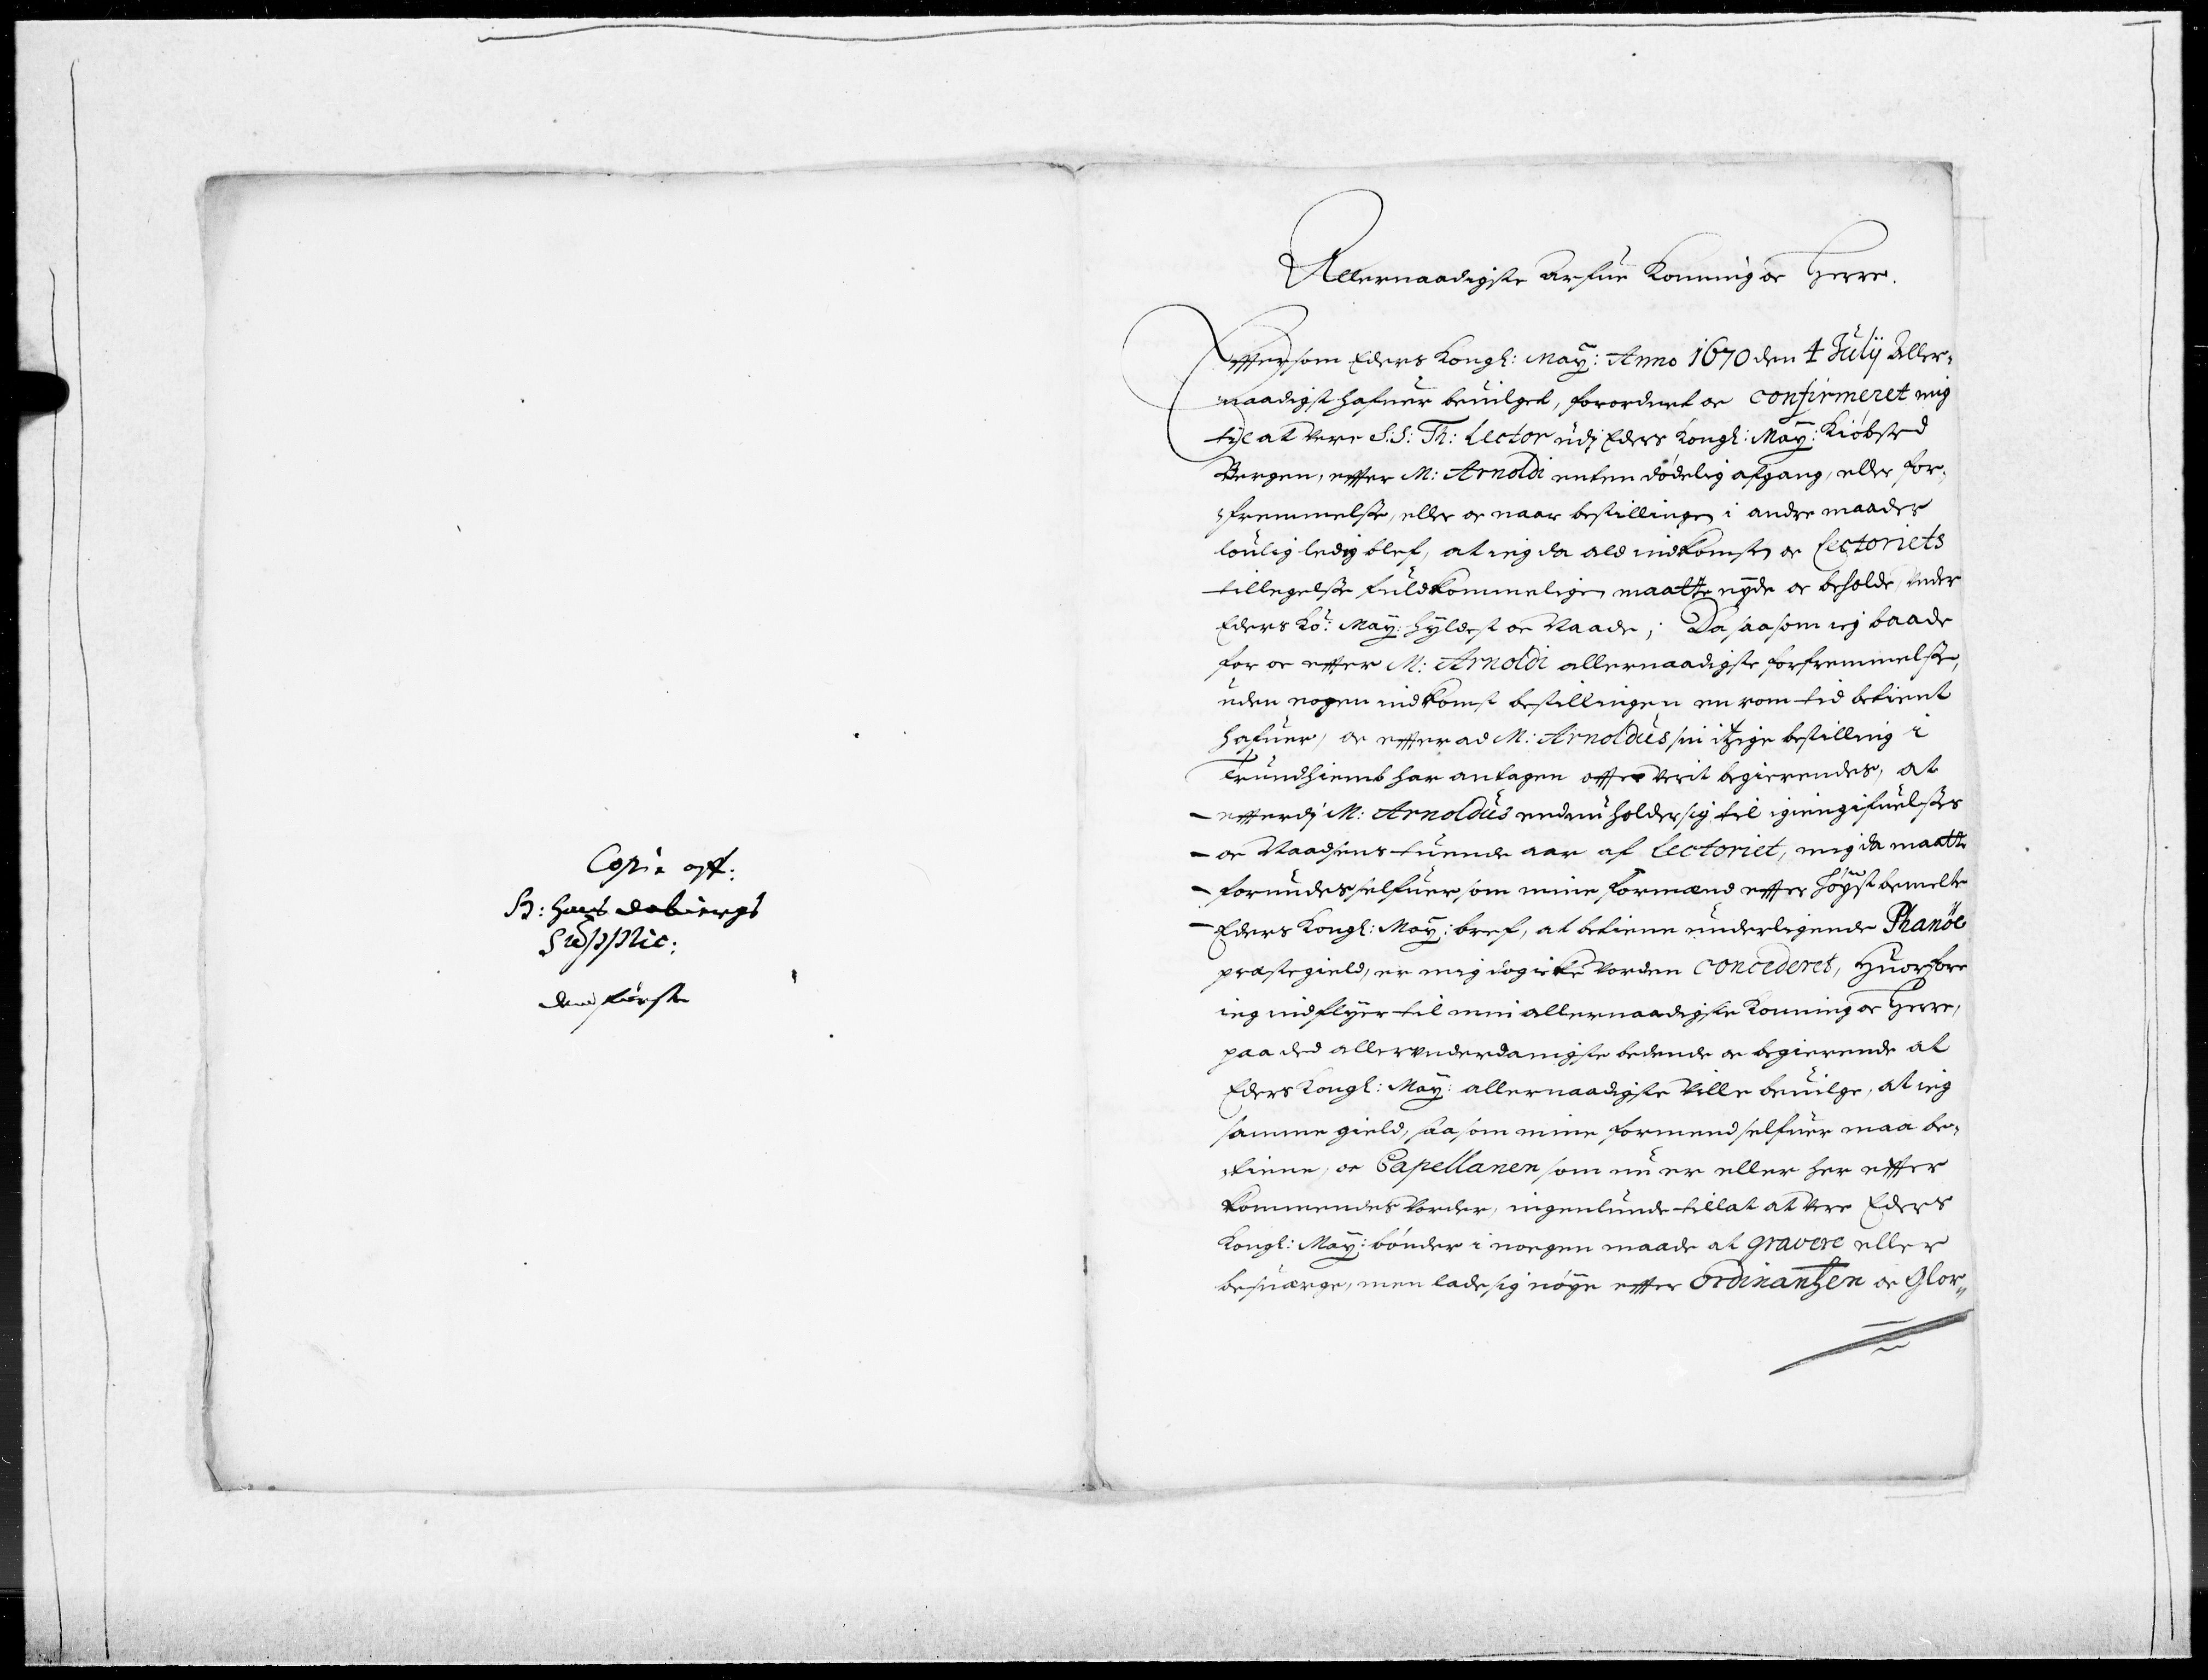 Copie aff:
H: Hans dabiergs
Supplic:
den første
Allernaadigste Arfue Konning oc Herre.
Efftersom Eders Kongl: May: Anno 1670 den 4 Julij Aller-
naadigst hafuer beuilget, forordnet oc confirmeret mig
till at vere S.S. Th: Lector udj Eders Kongl: May: Kiøbsted
Bergen, effter M: Arnoldi enten dødelig afgang, eller for-
fremmelse, eller oc naar bestillingen i andre maader
louligledig blef, at ieg da ald indkomst oc Lectoriets
tillegelse fuldkommeligen maatte nyde oc beholde under
Eders Ko: May: hyldest oc Naade; Da saasom ieg baade
for oc effter M: Arnoldi allernaadigste forfremmelse,
uden nogen indkomst bestillingen en rom tid betient
hafuer, oc effterad M: Arnoldus sin itzige bestilling i
Trundhiemb har antagen offte verit begierendes, at
effterdj M: Arnoldus endnu holder sig til igiengifuelses
oc Naadsens tuende aar af Lectoriet, mig da maatte
forundes selfuer som mine formænd effter høyst bemelte
Eders Kongl: May: bref, at betiene underligende Phanøe
præstegield, er mig dog icke vorden concederet, Huorfore
ieg indflyer til min allernaadigste Konning oc Herre,
paa ded allerunderdanigste bedende oc begierende at
Eders Kongl: May: allernaadigste ville beuilge, at ieg
samme gield, saasom mine formend selfuer maa be-
tiene, oc Capellanen som nu er eller her effter
kommendes vorder, ingenlunde tillat at vere Eders
Kongl: May: bønder i noegen maade at gravere eller
besuærge, men lade sig nøye effter Ordinantzen oc Glor-